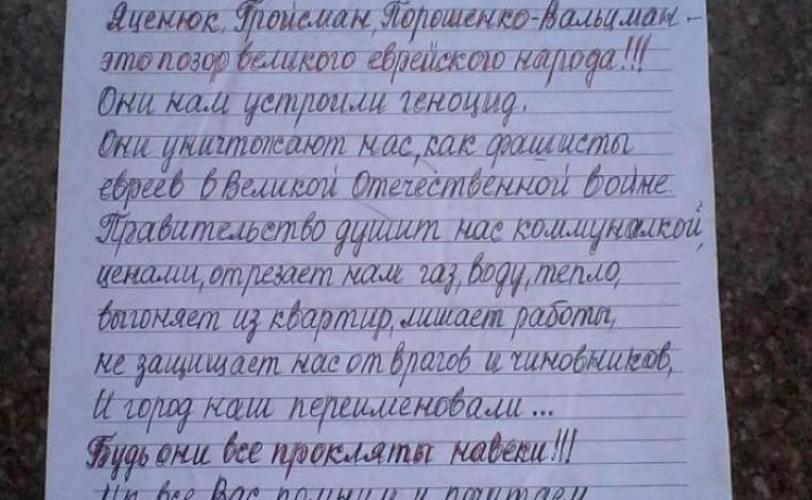 Яценюк, Гройсман, Порошенко-Вальцман-
это позор великого еврейского народа!!!
Они нам устроили геноцид.
Они уничтожают нас, как фашисты
евреев в Великой Отечественной войне.
Правительство душит нас коммуналкой,
ценами, отрезает нам газ, воду, тепло,
выгоняет из квартир, лишает работы,
не защищает нас от врагов и чиновников,
И город наш переименовали...
Будь они все прокляты навеки!!!
Вас помним и почитаем